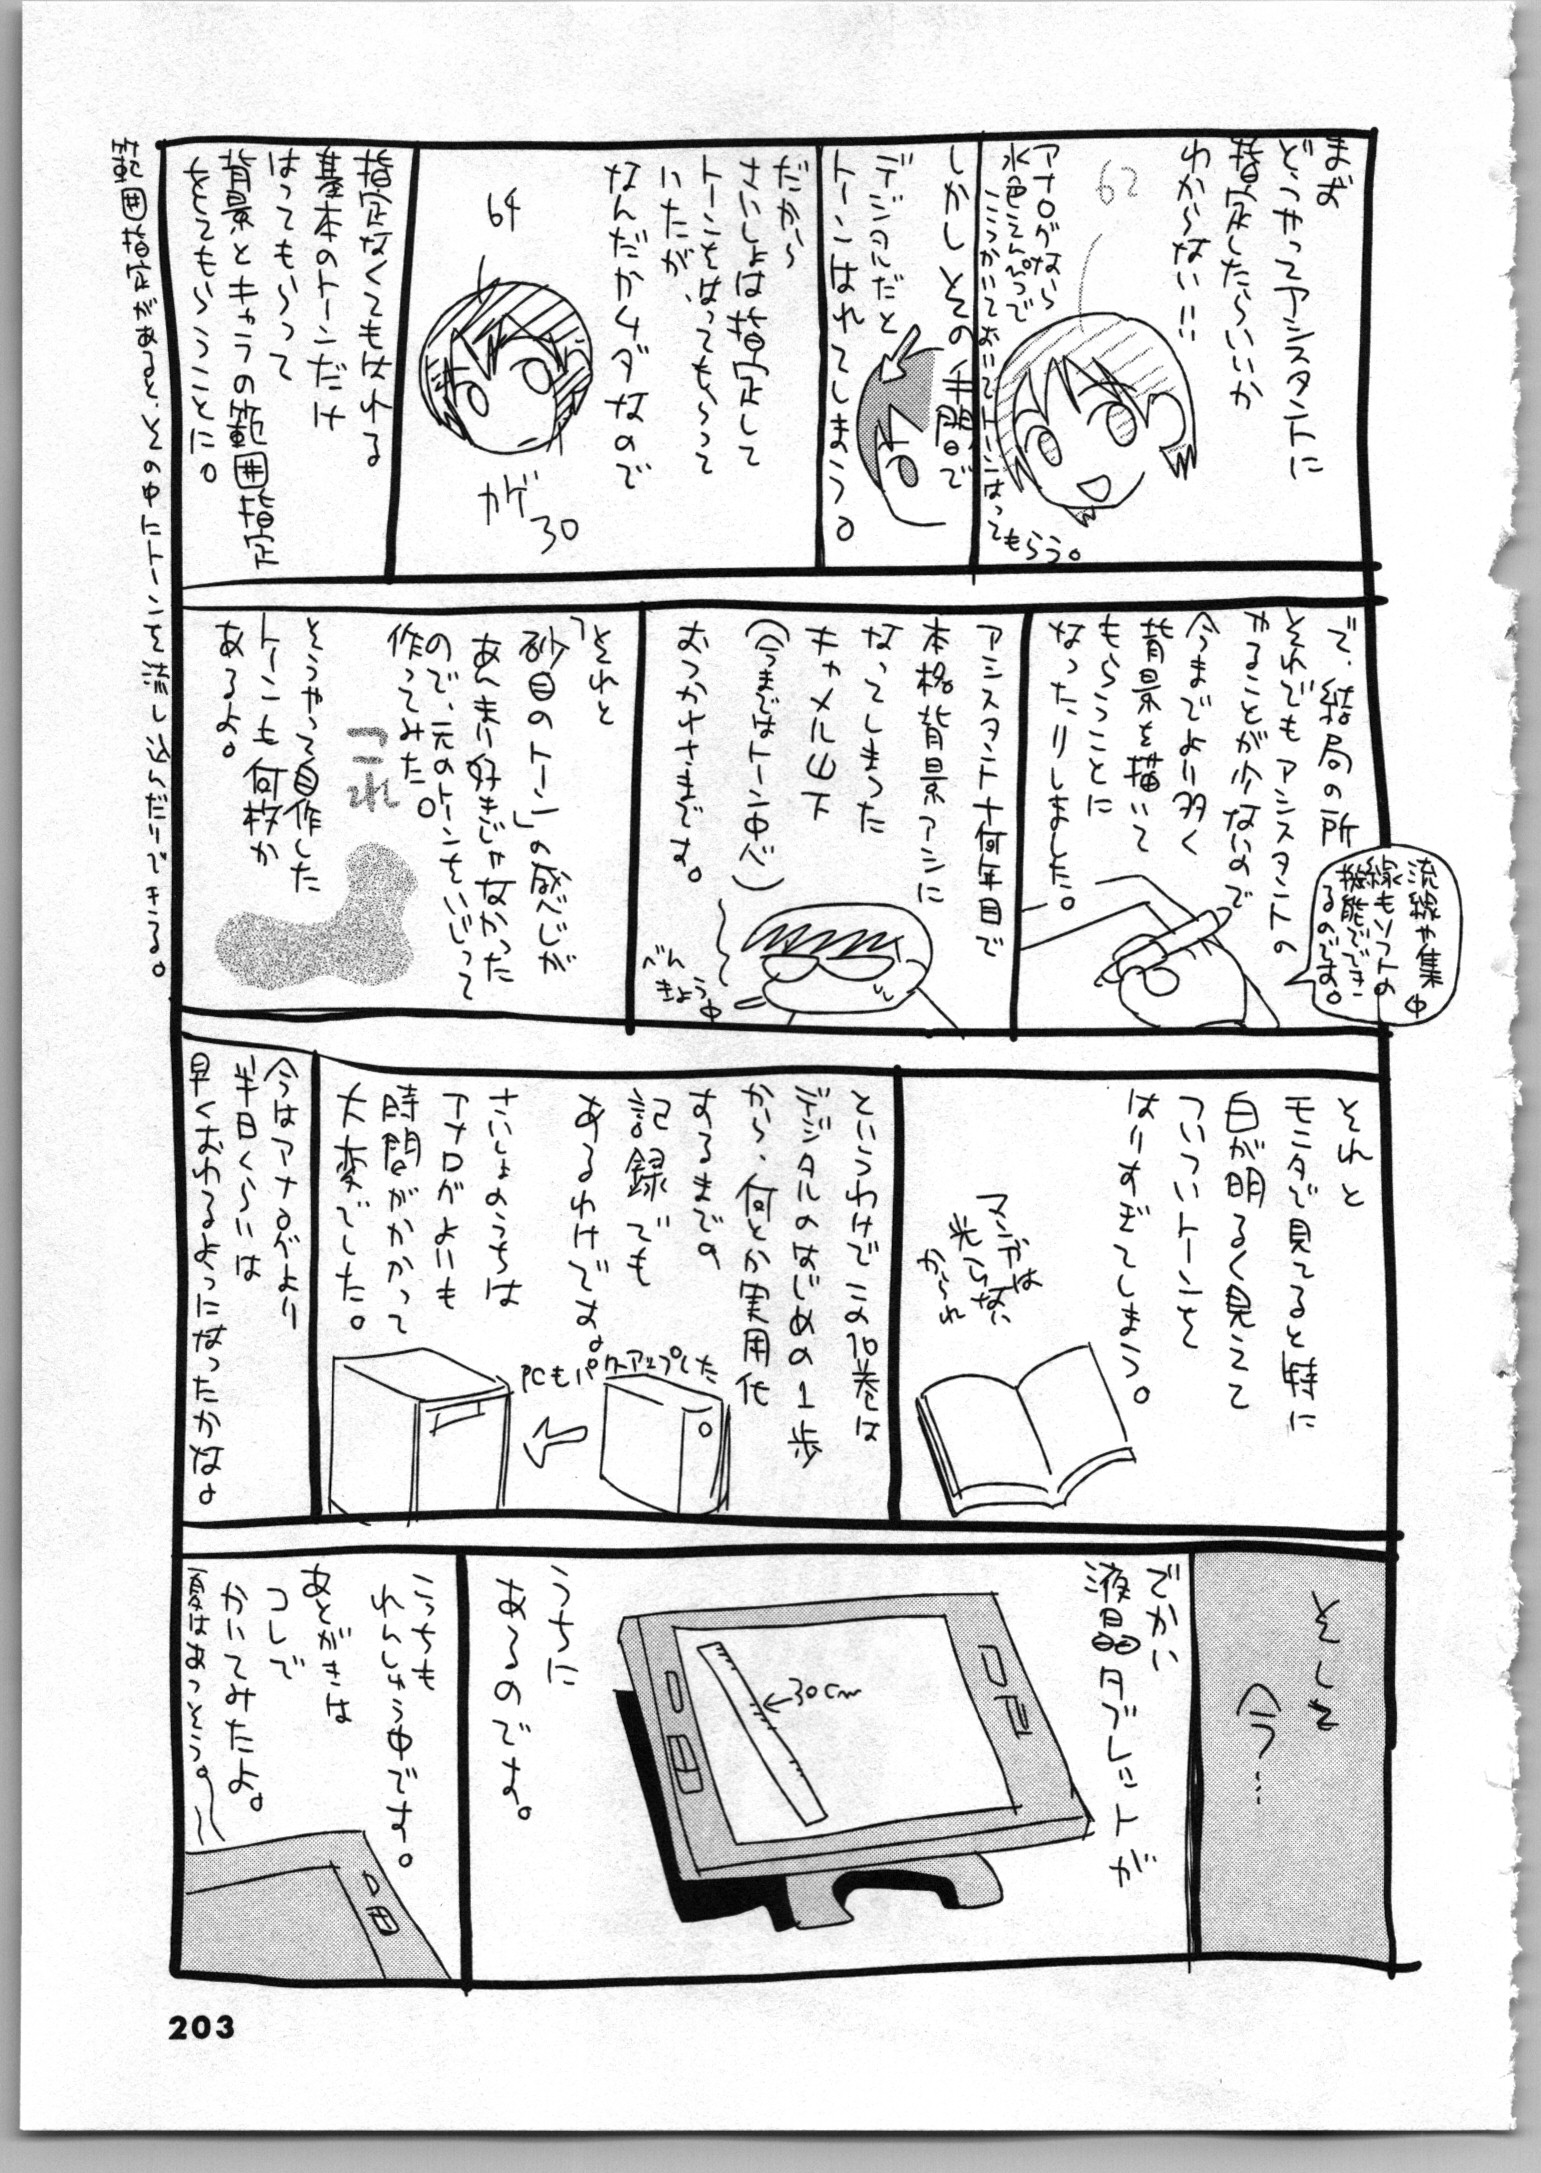 まず
どうやってアシスタントに
指定したらいいか
わからない!!
62
アナログなら
水色えんぴつで
こうかいておいてトーンはってもらう。
しかしその手間で
デジタルだと
トーンはれてしまう。
だから
さいしょは指定して
トーンをはってもらって
いたが、
なんだかムダなので
64
カゲ
30
指定なくてもはれる
基本のトーンだけ
はってもらって
背景とキャラの範囲指定
をしてもらうことに。
範囲指定があると、その中にトーンを流し込んだりできる。
で、結局の所
それでもアシスタントの
やることが少ないので
今までより多く
背景を描いて
もらうことに
なったりしました。
流線や集中
線もソフトの
機能でできるのです。
アシスタント十何年目で
本格背景アシに
なってしまった
キャメル山下
(今まではトーン中心)
おつかれさまです。
べんきょう中
それと
「砂目のトーン」の感じが
あんまり好きじゃなかった
ので、元のトーンをいじって
作ってみた。
これ
そうやって自作した
トーンも何枚か
あるよ。
それと
モニタで見てると特に
白が明るく見えて
ついついトーンを
はりすぎてしまう。
マンガは
光らない
から
というわけでこの10巻は
デジタルのはじめの1歩
から、何とか実用化
するまでの
記録でも
あるわけです。
さいしょのうちは
アナログよりも
時間がかかって
大変でした。
PCもパワーアップした
今はアナログより
半日くらいは
早くおわるようになったかな。
そして
今…
でかい
液晶タブレットが
30cm
うちに
あるのです。
こっちも
れんしゅう中です。
あとがきは
コレで
かいてみたよ。
夏はあつそう。
203